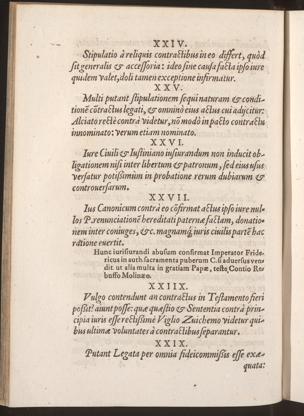 XXIV.
Stipulatio à reliquis contractibus in eo differt, quòd
sit generalis & accessoria: ideo sine causa facta ipso iure
quidem valet, doli tamen exceptione infirmatur.
XXV.
Multi putant stipulationem sequi naturam & condi-
tionē cōtractus legati, & omninò eius actus cui adijcitur:
Alciato rectè contrà videtur, nō modò in pacto contractu
innominato: verum etiam nominato.
XXVI.
Iure Ciuili & Iustiniano iusiurandum non inducit ob-
ligationem nisi inter libertum & patronum, sed eius usus
versatur potissimùm in probatione rerum dubiarum &
controuersarum.
XXVII.
Ius Canonicum contrà eo cōfirmat actus ipso iure nul-
los Prenunciationē hereditati paternæ factam, donatio-
nem inter coniuges, &c. magnamq́; iuris ciuilis partē hac
ratione euertit.
Hunc iurisiurandi abusum confirmat Imperator Fride-
ricus in auth. sacramenta puberum C. si aduersus ven-
dit. ut alia multa in gratiam Papæ, teste Contio Re
buffo Molinæo.
XXIIX.
Vulgo contendunt an contractus in Testamento fieri
possit? aiunt posse: quæ quæstio & Sententia contrà prin-
cipia iuris esse rectissimè Viglio Zuichemo videtur qui-
bus ultimæ voluntates à contractibus separantur.
XXIX.
Putant Legata per omnia fideicommissis esse exæ-
quata: